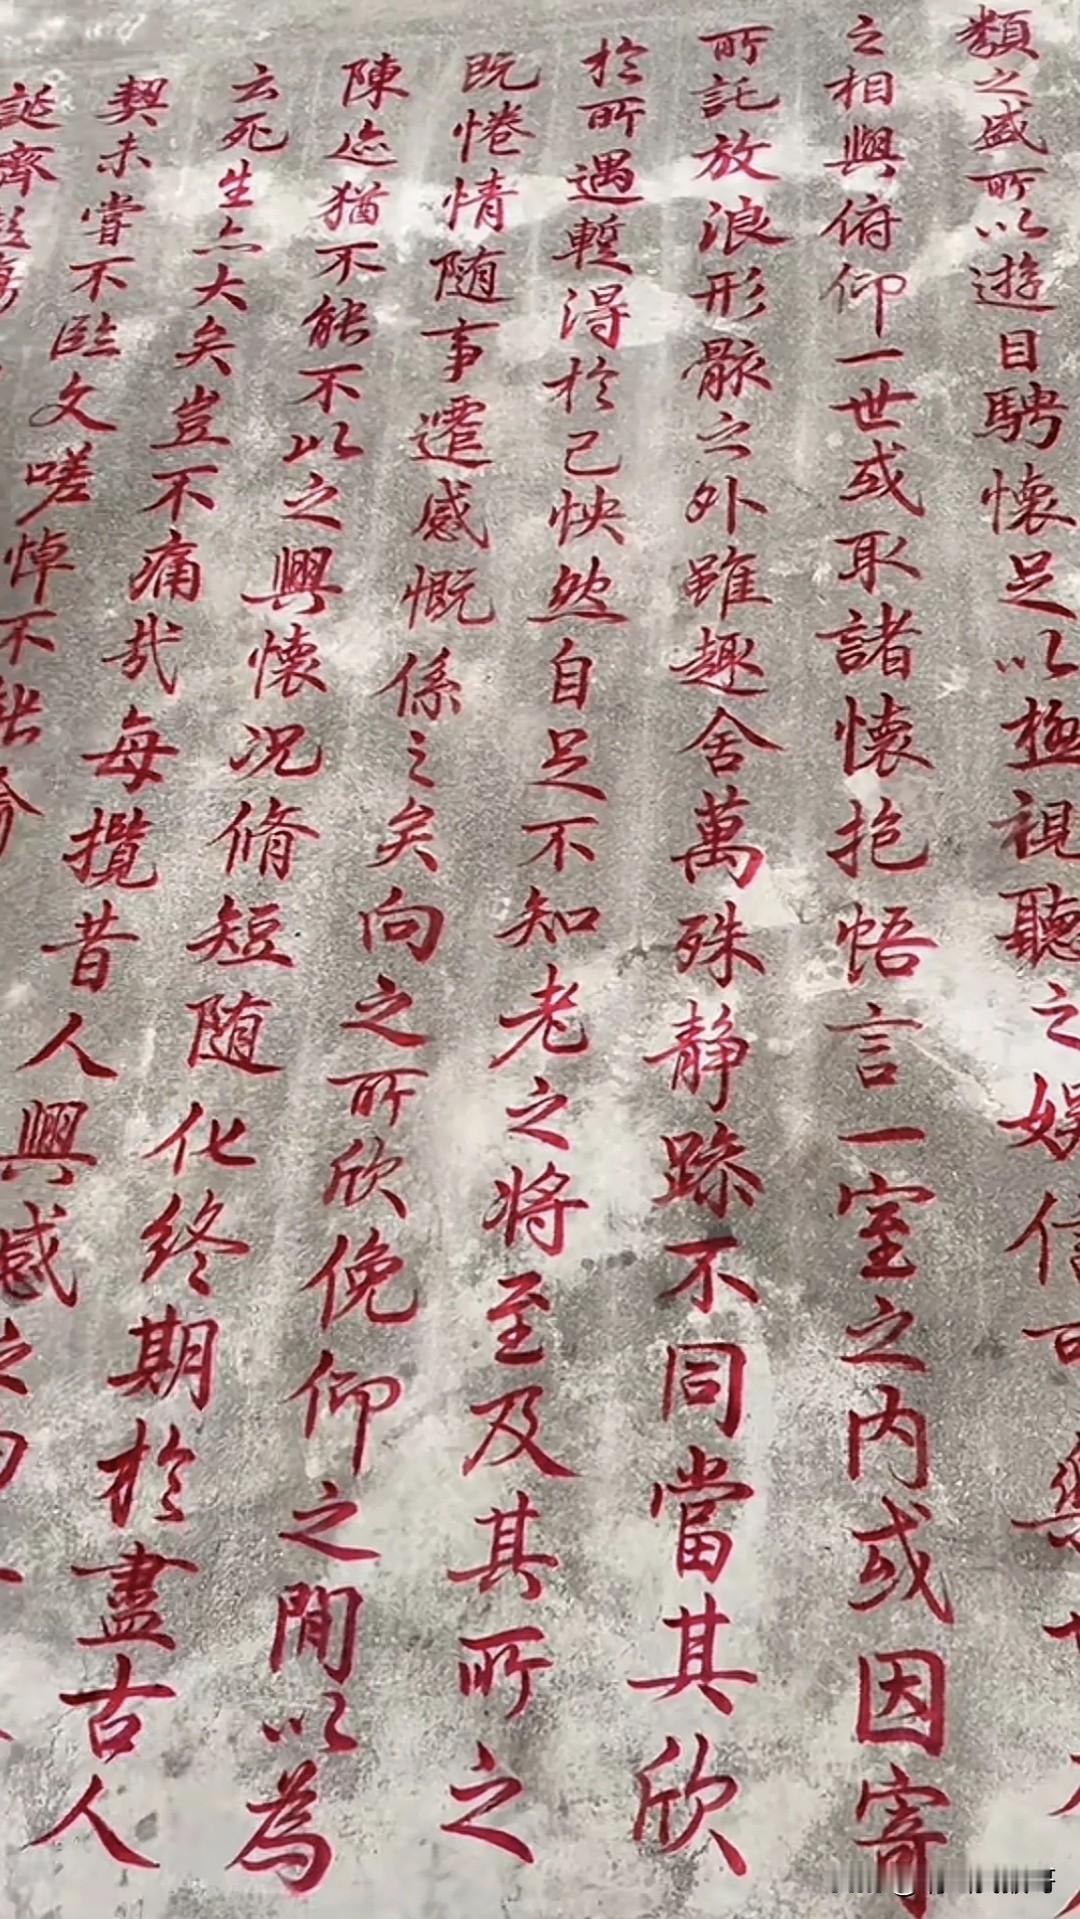 類之盛所以遊目騁懷足以極視聽之娛信可樂也夫人
之相與俯仰一世或取諸懷抱悟言一室之內或因寄
所託放浪形骸之外雖趣舍萬殊靜躁不同當其欣
於所遇暫得於己怏然自足不知老之將至及其所之
既惓情隨事遷感慨係之矣向之所欣俛仰之間以為
陳迹猶不能不以之興懷況脩短隨化終期於盡古人
云死生亦大矣豈不痛哉每攬昔人興感之
契未嘗不臨文嗟悼不能喻
誕齊彭殤